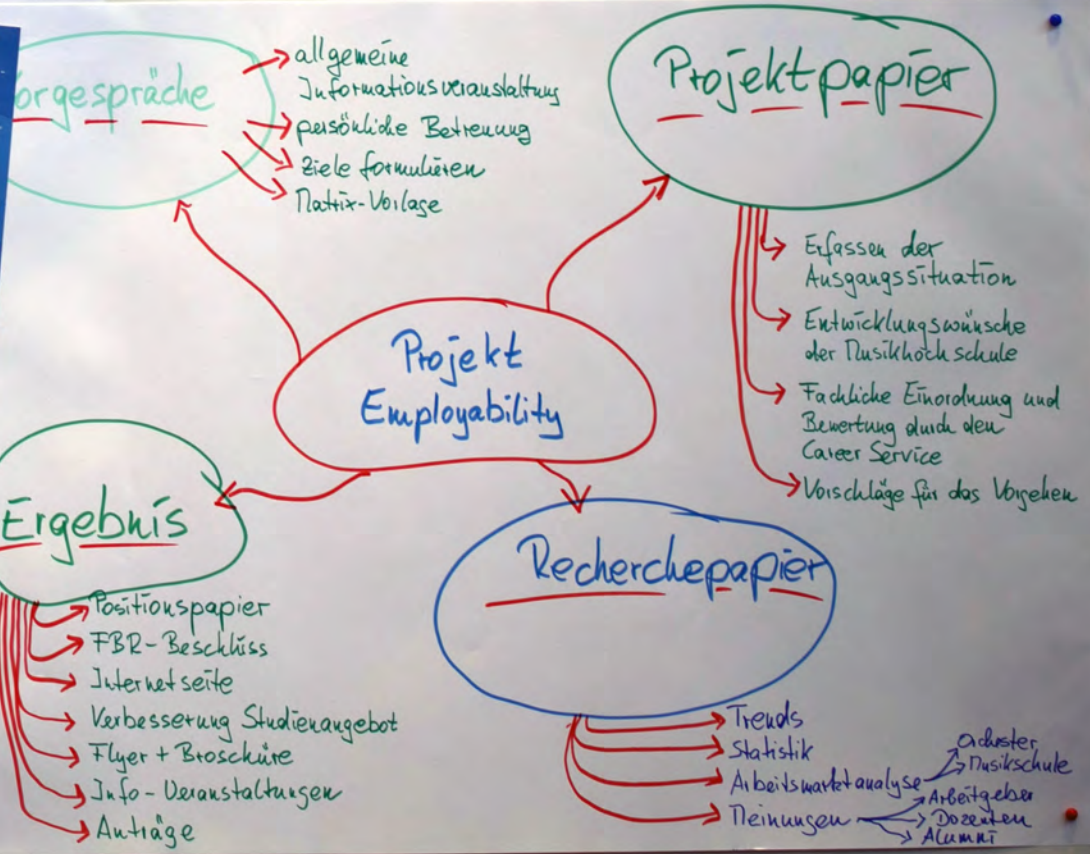 orgespräche
allgemeine
Informationsveranstaltung
persönliche Betreuung
Ziele formulieren
Matrix-Vorlage
Projektpapier
Erfassen der
Ausgangssituation
Entwicklungswünsche
der Musikhochschule
Fachliche Einordnung und
Bewertung durch den
Career Service
Vorschläge für das Vorgehen
Projekt
Employability
Ergebnis
Positionspapier
FBR-Beschluss
Internetseite
Verbesserung Studienangebot
Flyer + Broschüre
Info-Veranstaltungen
Anträge
Recherchepapier
Trends
Statistik
Arbeitsmarktanalyse
Orchester
Musikschule
Meinungen
Arbeitgeber
Dozenten
Alumni